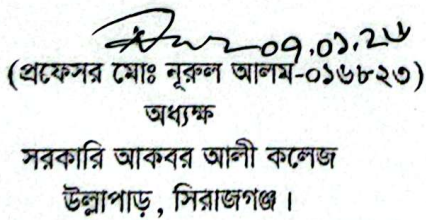 ০৭.০১.২৬
(প্রফেসর মোঃ নূরুল আলম-০১৬৮২৩)
অধ্যক্ষ
সরকারি আকবর আলী কলেজ
উল্লাপাড়, সিরাজগঞ্জ।